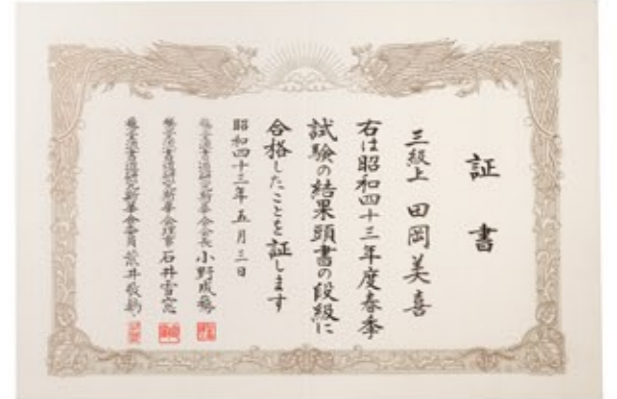 証書
三級上 田岡美喜
右は昭和四十三年度春季
試験の結果頭書の段級に
合格したことを証します
昭和四十三年五月三日
会長 小野成鵞
理事 石井雪窓
委員 荒井